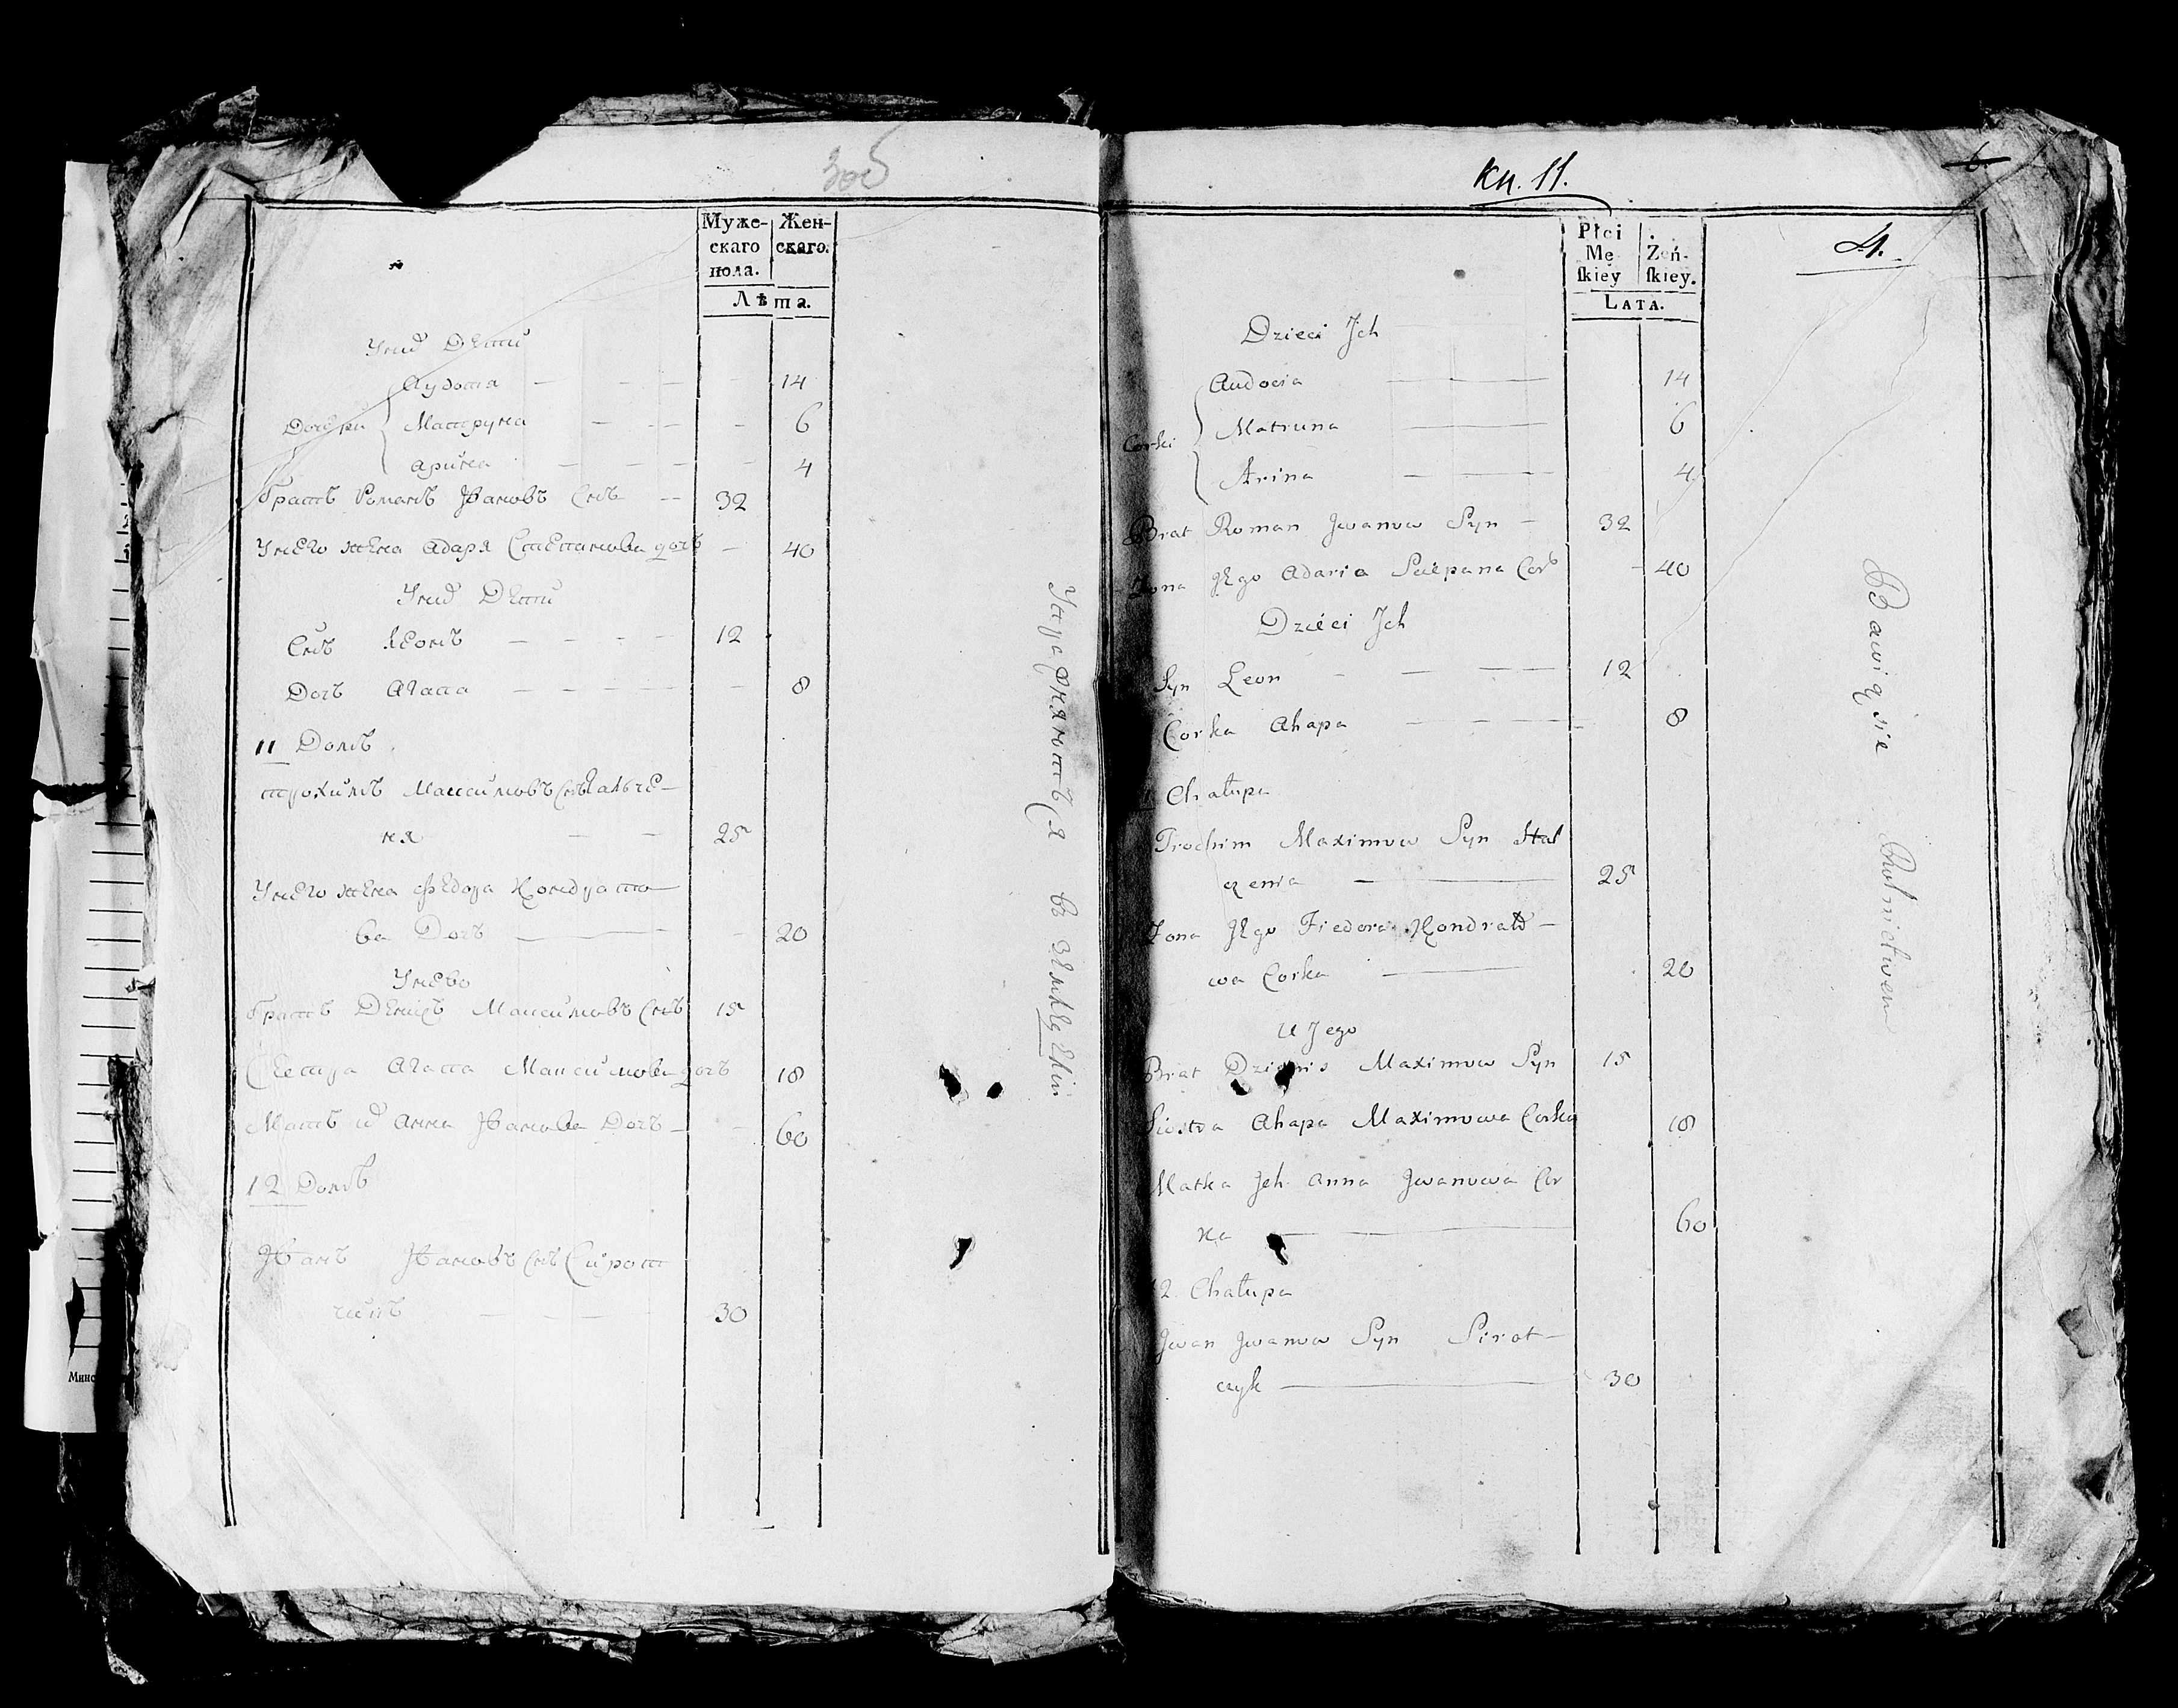 306
Муже-
скаго
пола.
Жен-
скаго.
Лѣта.
Унид Дети
Дочери
Аудотя 14
Матруна 6
Арина 4
братъ Романъ Ивановъ Снъ 32
Унего жена Адаря Степанова дочъ 40
Унид Дети
Снъ Леонъ 12
Дочъ Агапа 8
11 Домъ
трохимъ Максимовъ Снъ
ня 25
Унего жена Федора Кондрато
ва Дочъ 20
Унево
братъ Денисъ Максимовъ Снъ 15
Сестра Агапа Максимова дочъ 18
Матъ и Анна Иванова Дочъ 60
12 Домъ
Иванъ Ивановъ Снъ Сирот
чикъ 30
Упражняютъся в
Минс
Кн. 11.
6.
4.
Płci
Mę
ſkiey
Żeń-
ſkiey.
LATA.
Dzieci Jch
Corki
Audocia 14
Matruna 6
Arina 4
Brat Roman Jwanow Syn 32
Żona Jego Adaria Sciepana Cor 40
Dzieci Jch
Syn Leon 12
Corka Ahapa 8
Chałupa
Trochim Maximow Syn Hal
czenia 25
Żona Jego Fiedora Kondrato
wa Corka 20
U Jego
Brat Dzienis Maximow Syn 15
Siostra Ahapa Maximowa Corka 18
Matka Jch Anna Jwanowa Cor
ka 60
12 Chałupa
Jwan Jwanow Syn Sirot
czyk 30
Bawią się Rolnictwem